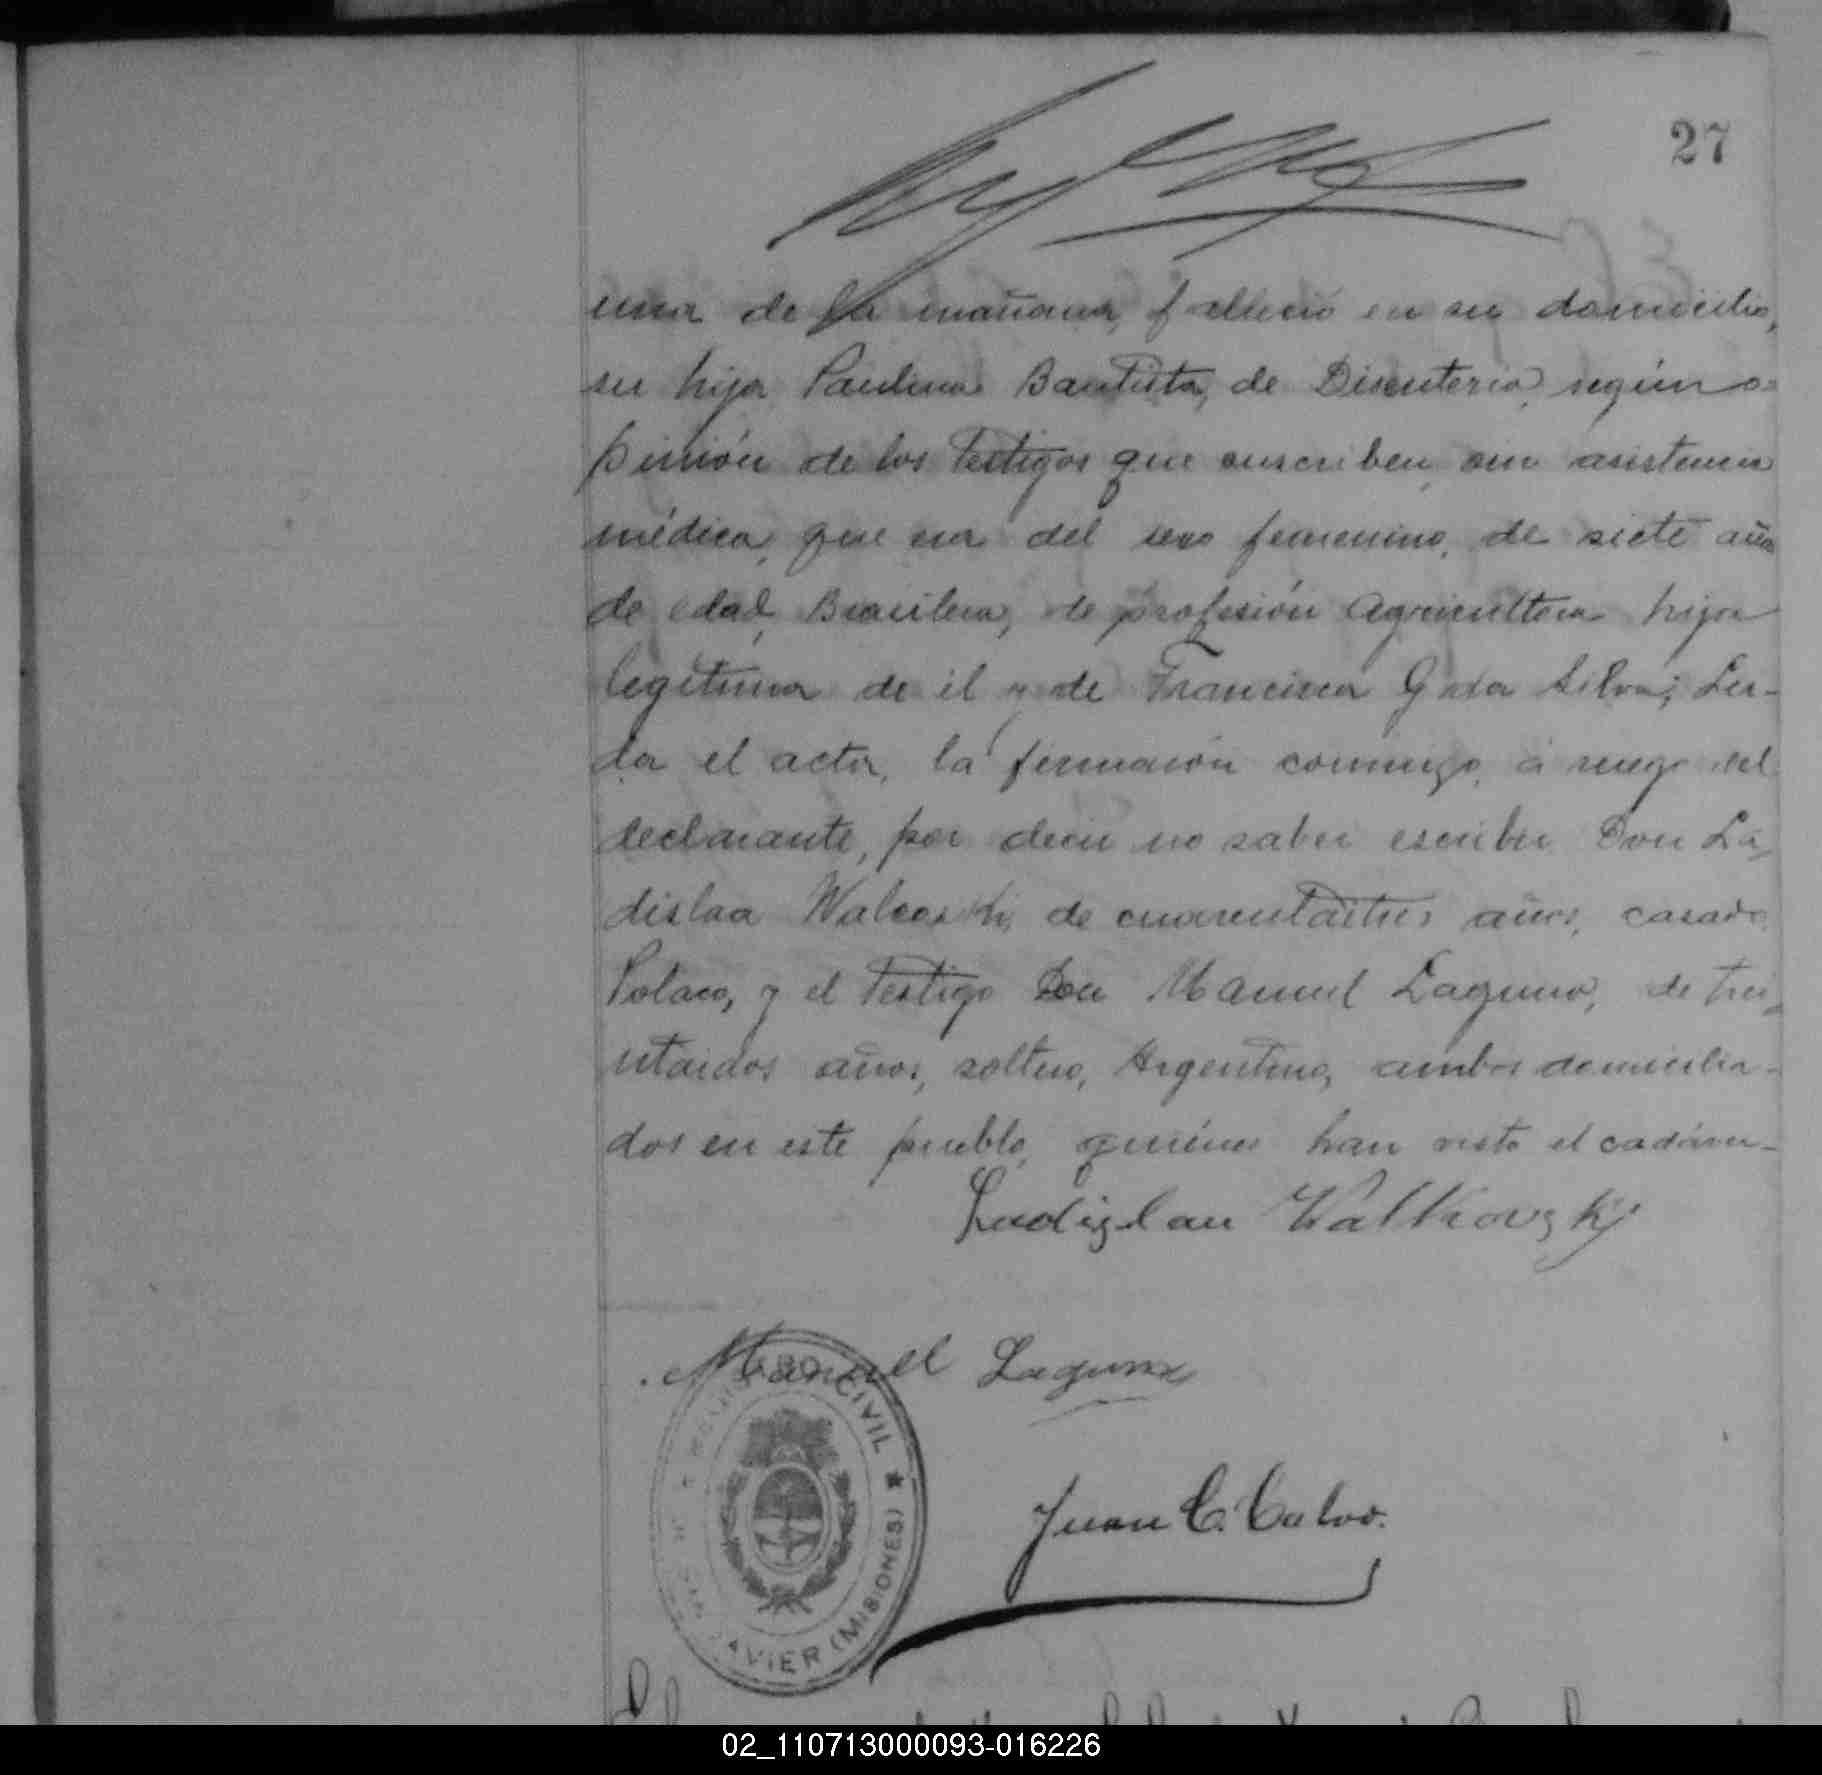 27
una de la mañana, falleció en su domicilio,
su hija Paulina Bautista, de Disenteria, según o-
pinión de los testigos que suscriben, sin asistencia
médica, que era del sexo femenino, de siete años
de edad, Brasilera, de profesión Agricultora hija
legítima de él y de Francisca G da Silva; Lei-
da el acta, la firmaron conmigo, á ruego del
declarante, por decir no saber escribir Don La-
dislaa Walcoski, de cuarentaitres años, casado,
Polaco, y el testigo Don Manuel Laguno, de trei-
ntaidos años, soltero, Argentino, ambos domicilia-
dos en este pueblo, quiénes han visto el cadáver-
Ladislau Walkovski
Manuel Laguno
REGISTRO CIVIL ★ SAN JAVIER (MISIONES)
Juan C. Calvo.
02_110713000093-016226